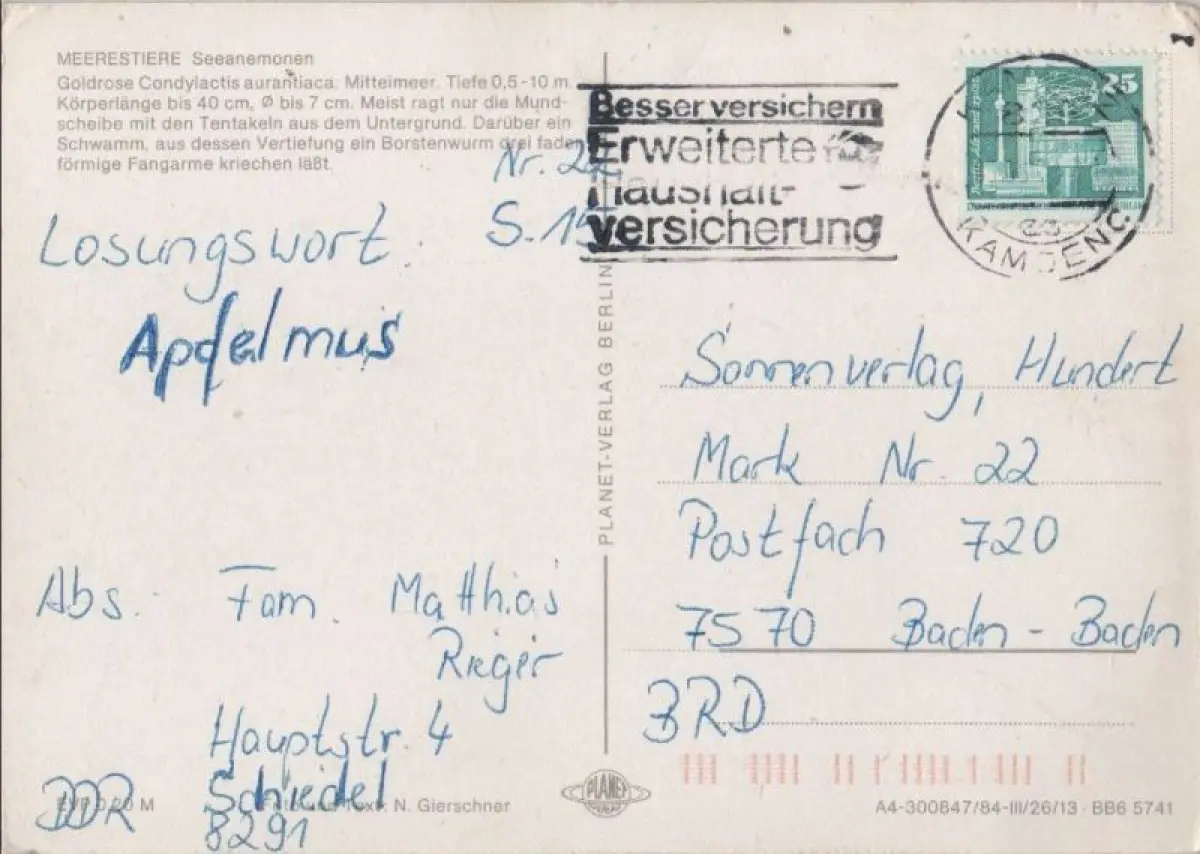 MEERESTIERE Seeanemonen
Goldrose Condylactis aurantiaca. Mittelmeer. Tiefe 0,5-10 m.
Körperlänge bis 40 cm, Ø bis 7 cm. Meist ragt nur die Mund-
scheibe mit den Tentakeln aus dem Untergrund. Darüber ein
Schwamm, aus dessen Vertiefung ein Borstenwurm drei faden-
förmige Fangarme kriechen läßt.
Nr. 22
S. 15
Losungswort:
Apfelmus
Abs. Fam. Matthias
Rieger
Hauptstr. 4
Schiedel
DDR 8291
EVP 0,20 M
Foto und Text: N. Gierschner
PLANET-VERLAG BERLIN
PLANET
Besser versichern
Erweiterte
Haushalt-
versicherung
25
KAMENZ
Sonnenverlag, Hundert
Mark Nr. 22
Postfach 720
7570 Baden - Baden
BRD
A4-300847/84-III/26/13 · BB6 5741